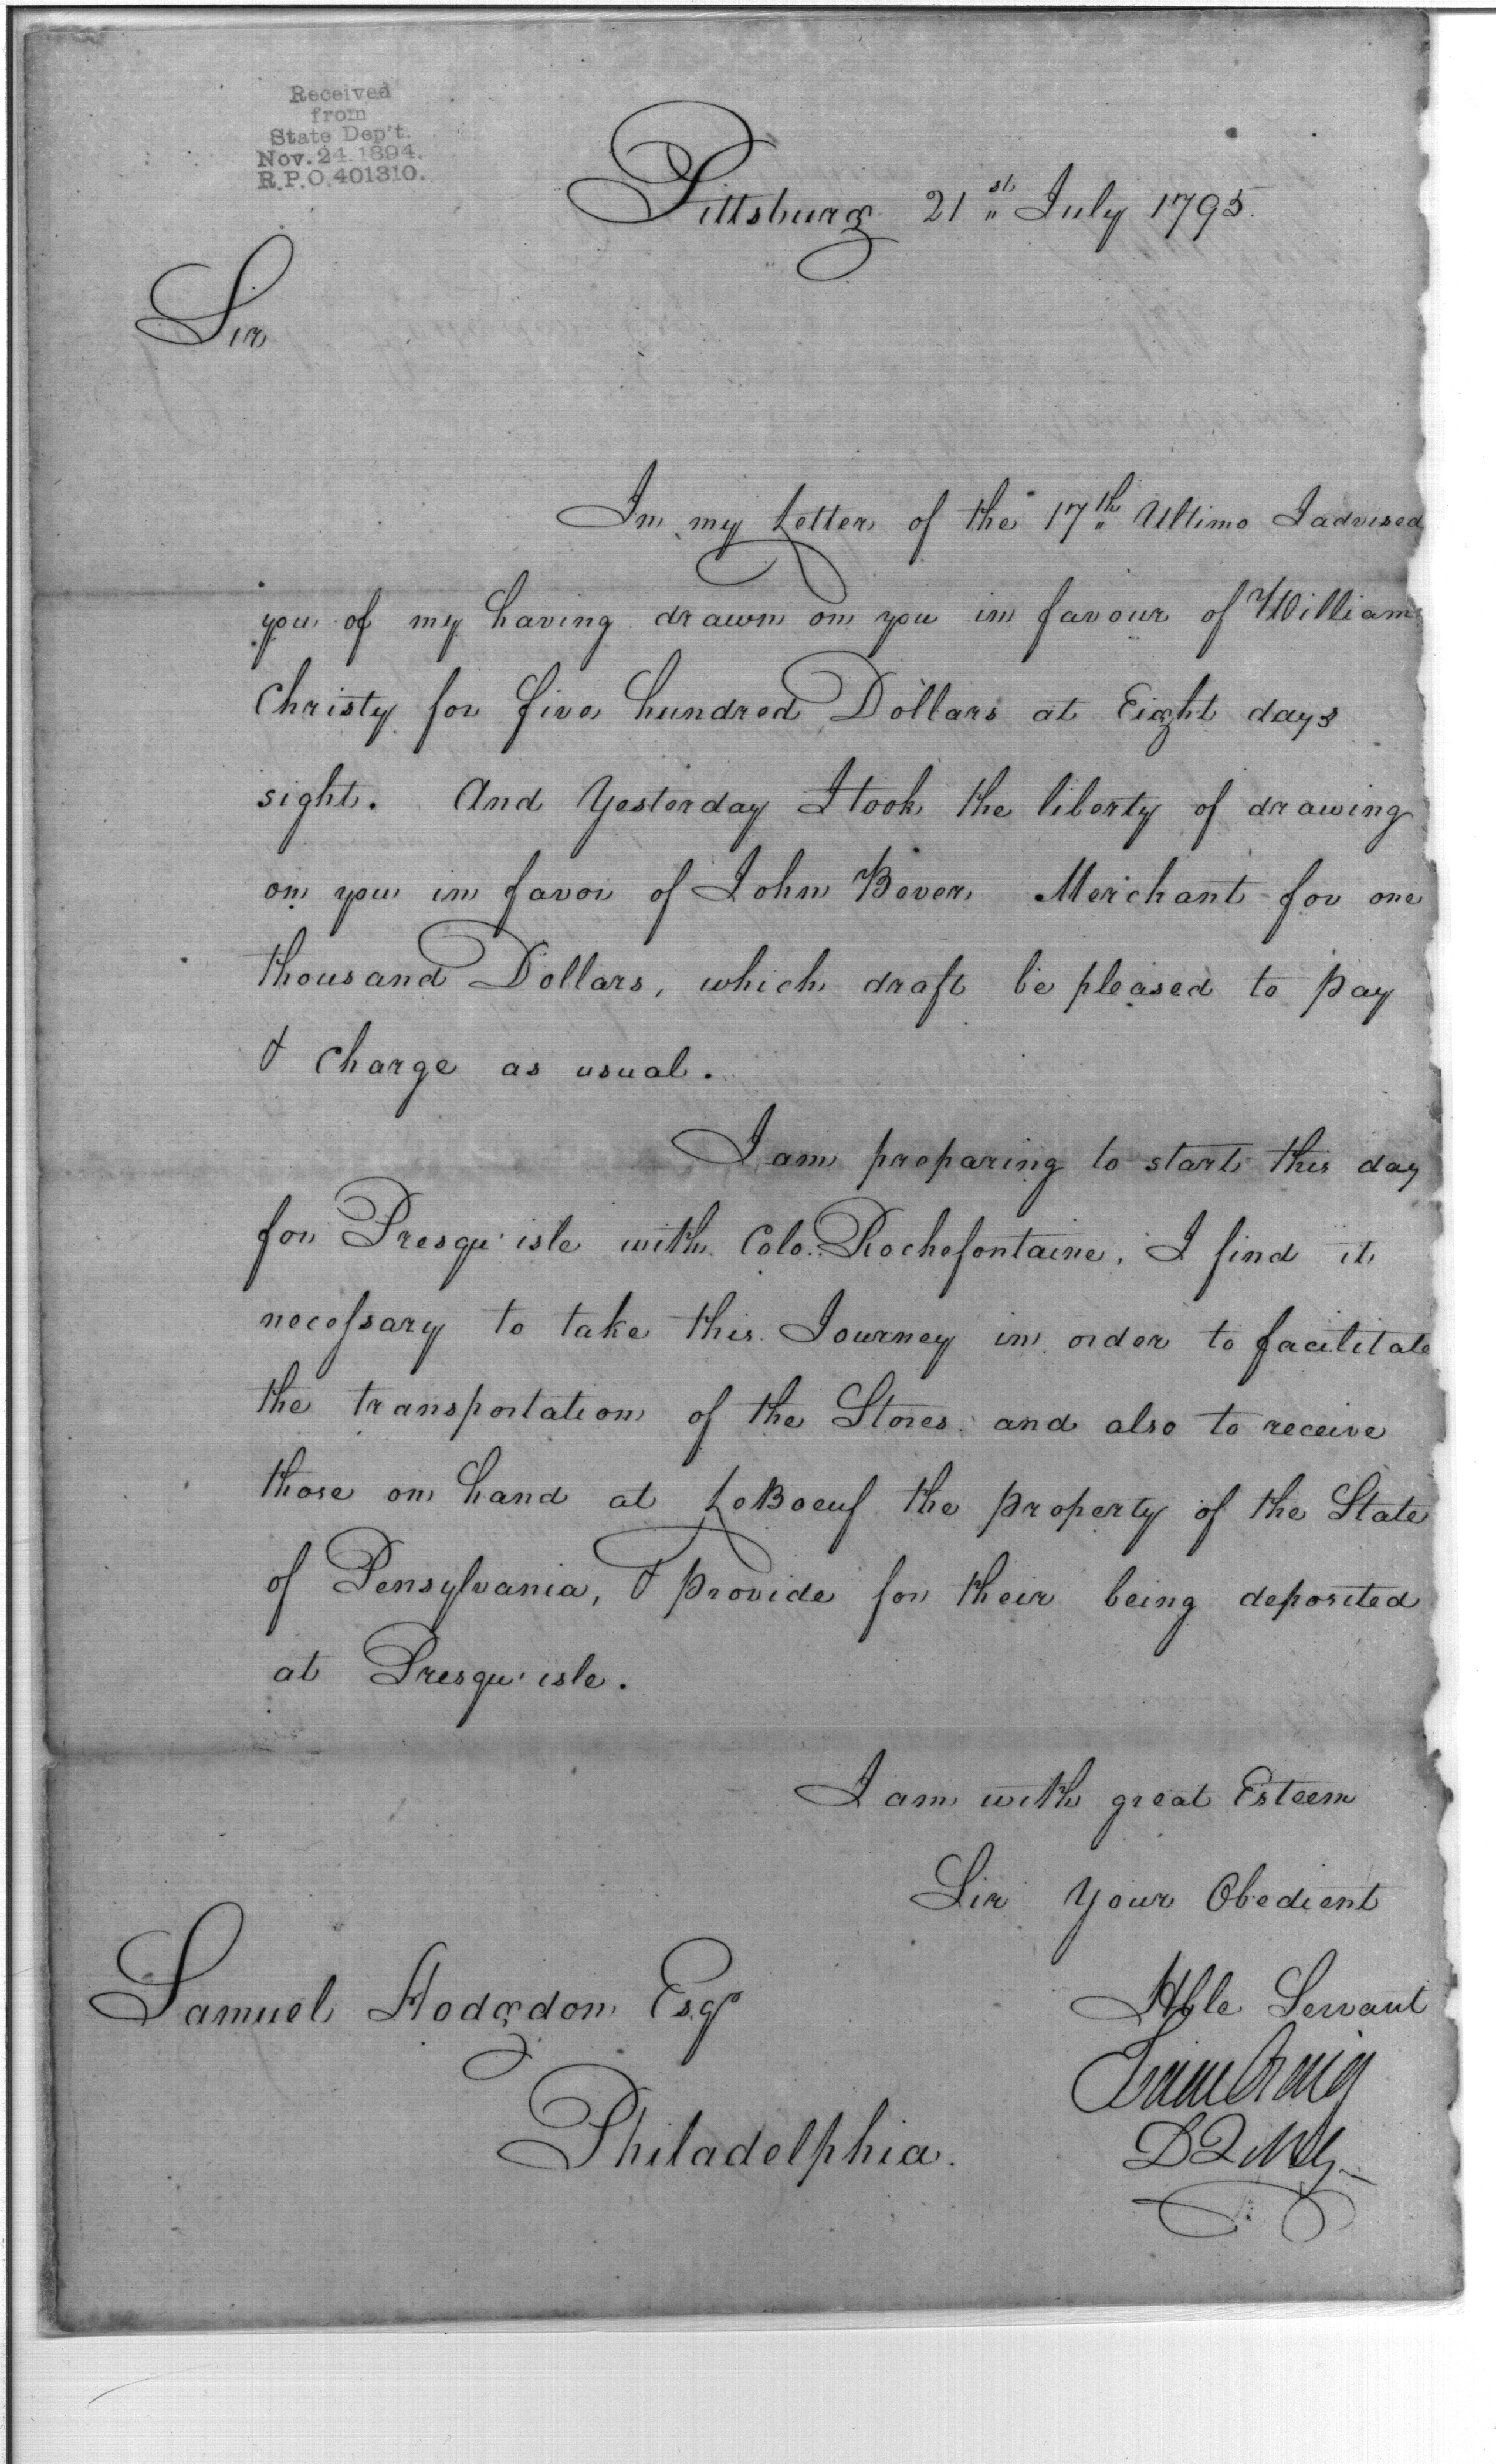 Received
from
State Dep't.
Nov. 24. 1894.
R.P.O. 401310.
Pittsburg 21st July 1795.
Sir
In my Letter of the 17th Ultimo I advised
you of my having drawn on you in favour of William
Christy for five hundred Dollars at Eight days
sight. And Yesterday I took the liberty of drawing
on you in favor of John Bever Merchant for one
thousand Dollars, which draft be pleased to pay
& Charge as usual.
I am preparing to start this day
for Presqu'isle with Colo. Rochefontaine, I find it
necessary to take this Journey in order to facilitate
the transportation of the Stores and also to receive
those on hand at LeBoeuf the property of the State
of Pensylvania, & provide for their being deposited
at Presqu'isle.
I am with great Esteem
Sir Your Obedient
Hble Servant
Isaac Craig
DQMG
Samuel Hodgdon Esqr
Philadelphia.